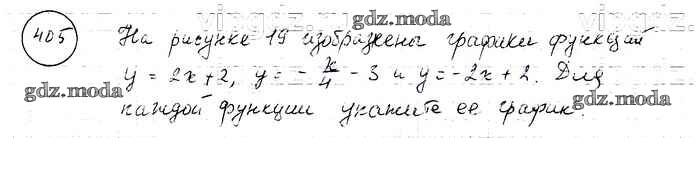 405 На рисунке 19 изображены графики функций
y = 2x+2, y = - x/4 - 3 и y = -2x + 2. Для
каждой функции укажите ее график.
gdz.moda
gdz.moda
gdz.moda
gdz.moda